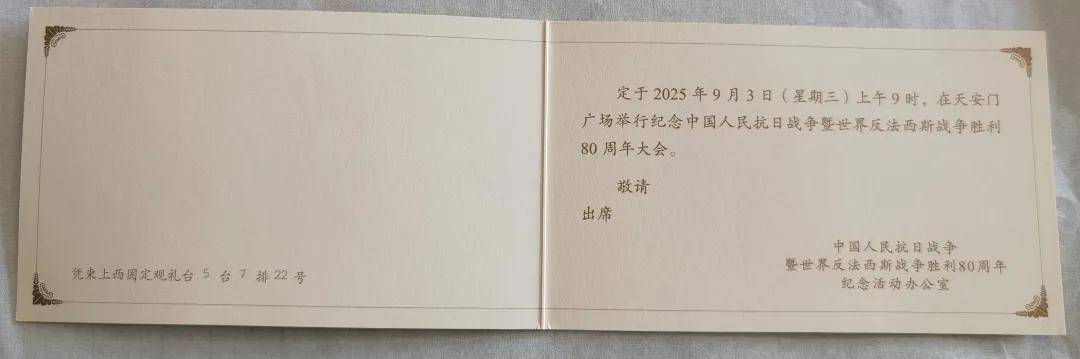 凭柬上西固定观礼台 5 台 7 排 22 号
定于 2025 年 9 月 3 日（星期三）上午 9 时，在天安门
广场举行纪念中国人民抗日战争暨世界反法西斯战争胜利
80 周年大会。
敬请
出席
中国人民抗日战争
暨世界反法西斯战争胜利80周年
纪念活动办公室